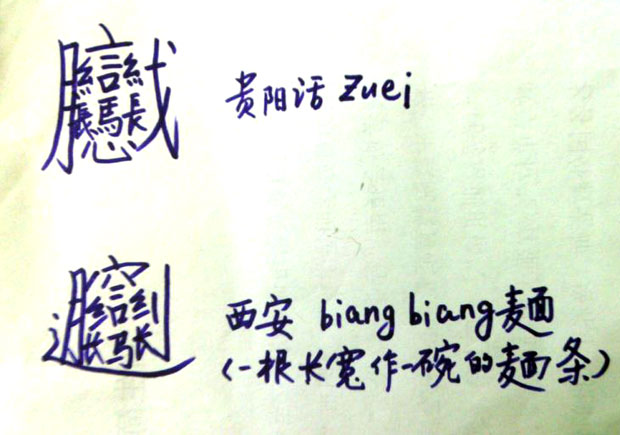 贵阳话 zuei
𰻝 西安 biang biang 麵
(一根长宽作一碗的麵条)